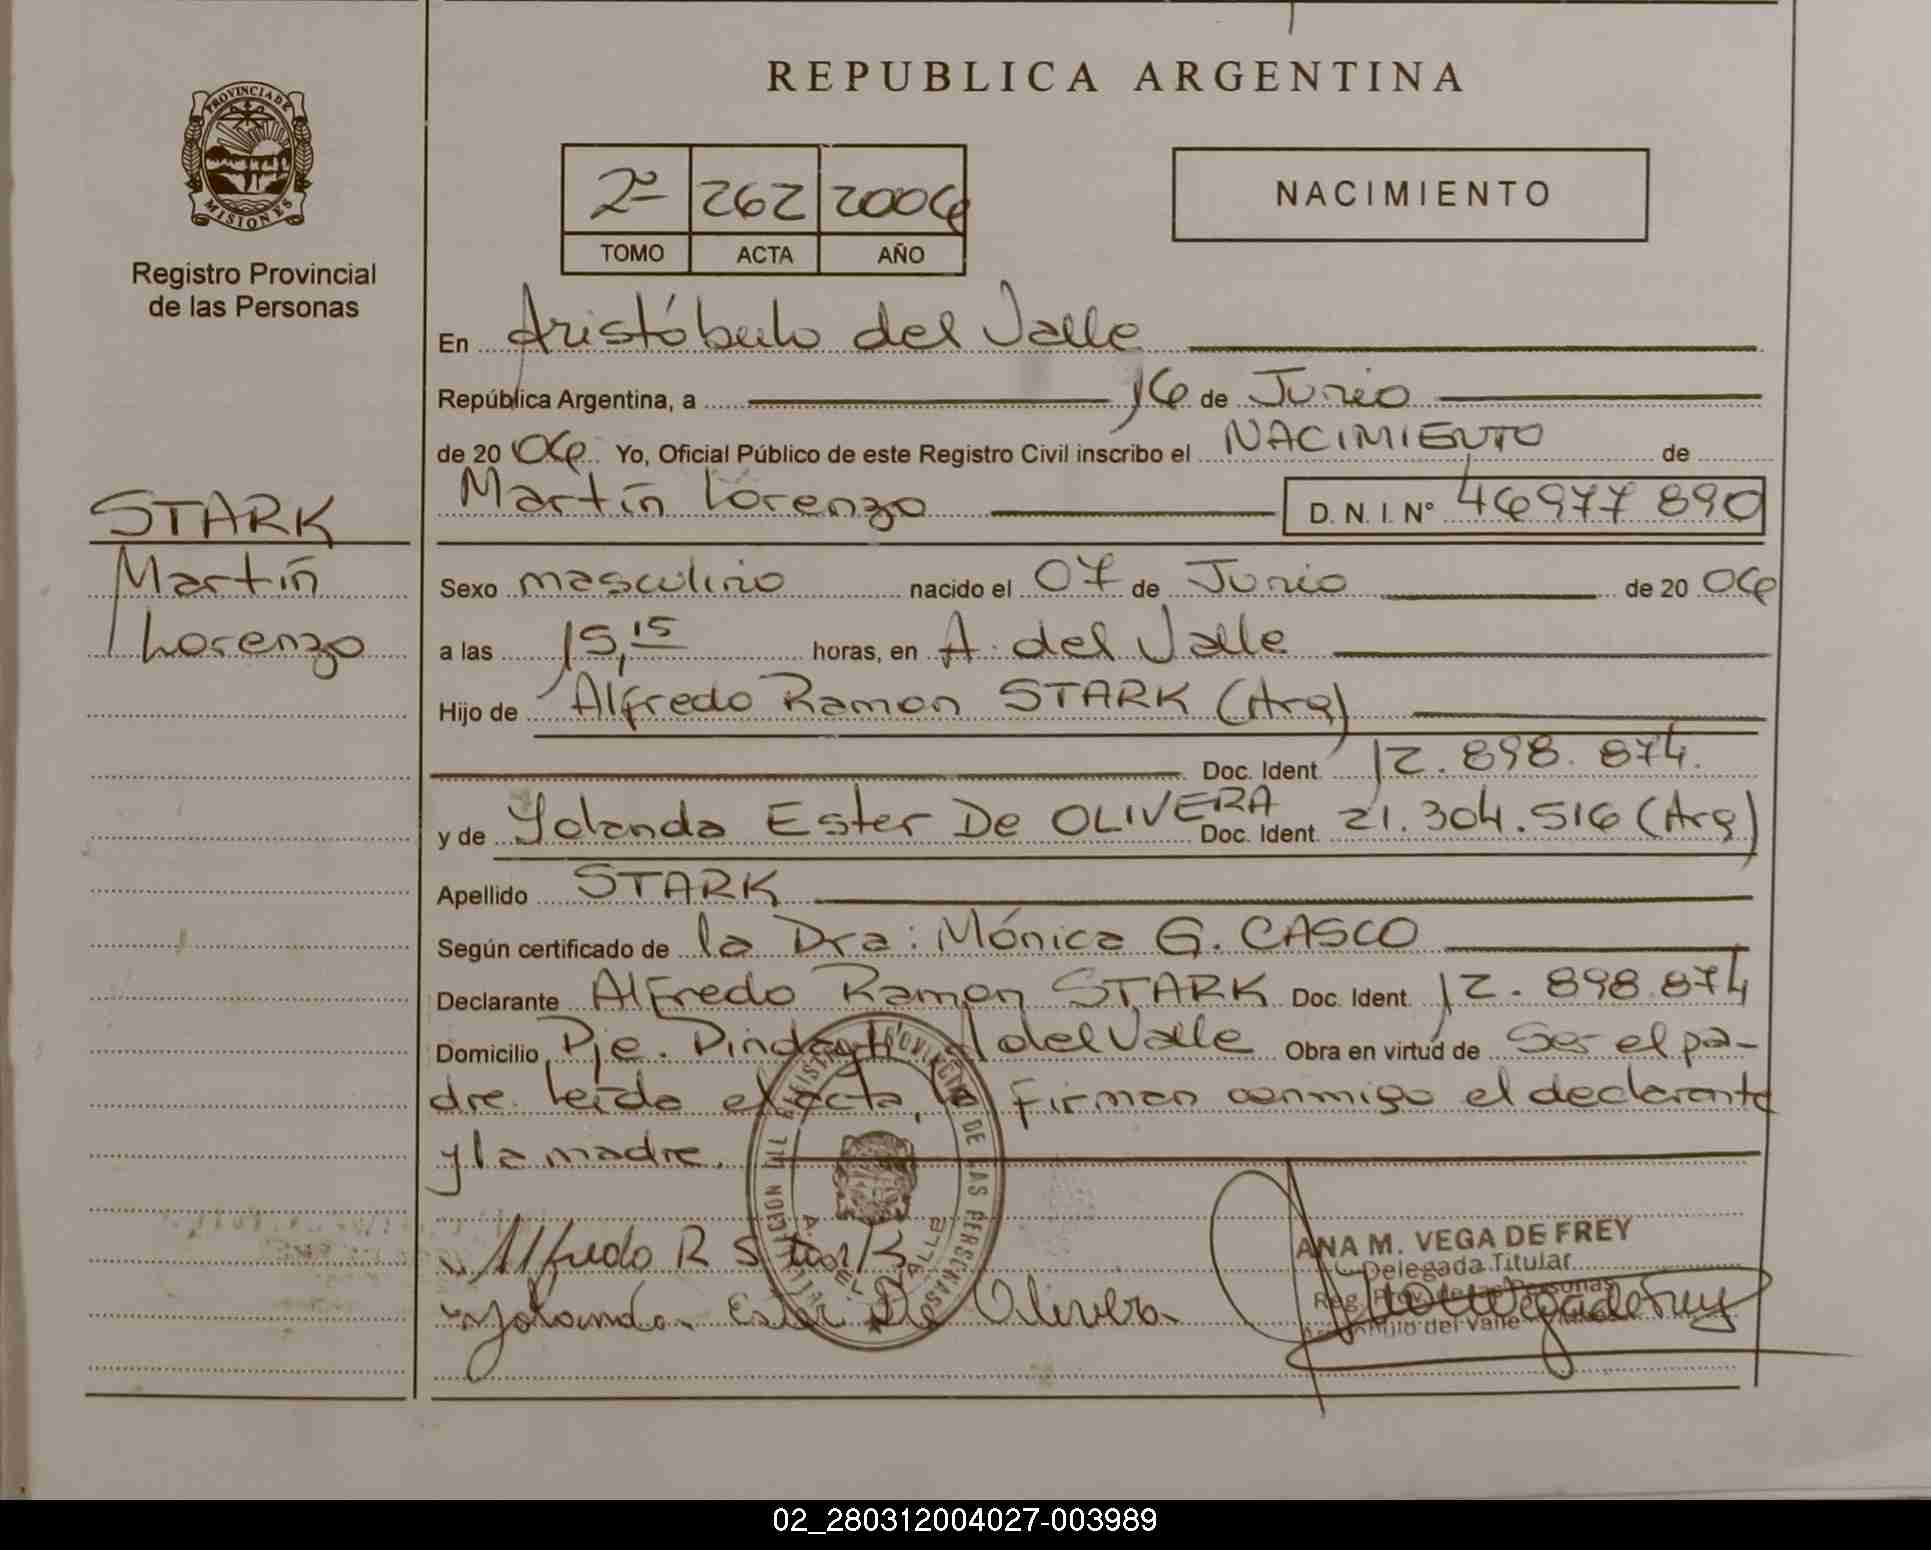 REPUBLICA ARGENTINA
PROVINCIA DE
MISIONES
Registro Provincial
de las Personas
2º 262 2006
TOMO ACTA AÑO
NACIMIENTO
En Aristóbulo del Valle
República Argentina, a 16 de Junio
de 20 06 Yo, Oficial Público de este Registro Civil inscribo el NACIMIENTO de
Martín Lorenzo D. N. I. Nº 46977 890
STARK
Martín
Lorenzo
Sexo masculino nacido el 07 de Junio de 20 06
a las 15,15 horas, en A. del Valle
Hijo de Alfredo Ramon STARK (Arg)
Doc. Ident. 12.898.874.
y de Yolanda Ester De OLIVERA Doc. Ident. 21.304.516 (Arg)
Apellido STARK
Según certificado de la Dra: Mónica G. CASCO
Declarante Alfredo Ramon STARK Doc. Ident. 12.898.874
Domicilio Pje. A del Valle Obra en virtud de Ser el pa-
dre. Leída el acta, la firman conmigo el declarante
y la madre.
Alfredo R Stark
Yolanda Ester De Olivera
ANA M. VEGA DE FREY
Delegada Titular
Reg. Prov. de las Personas
del Valle
02_280312004027-003989